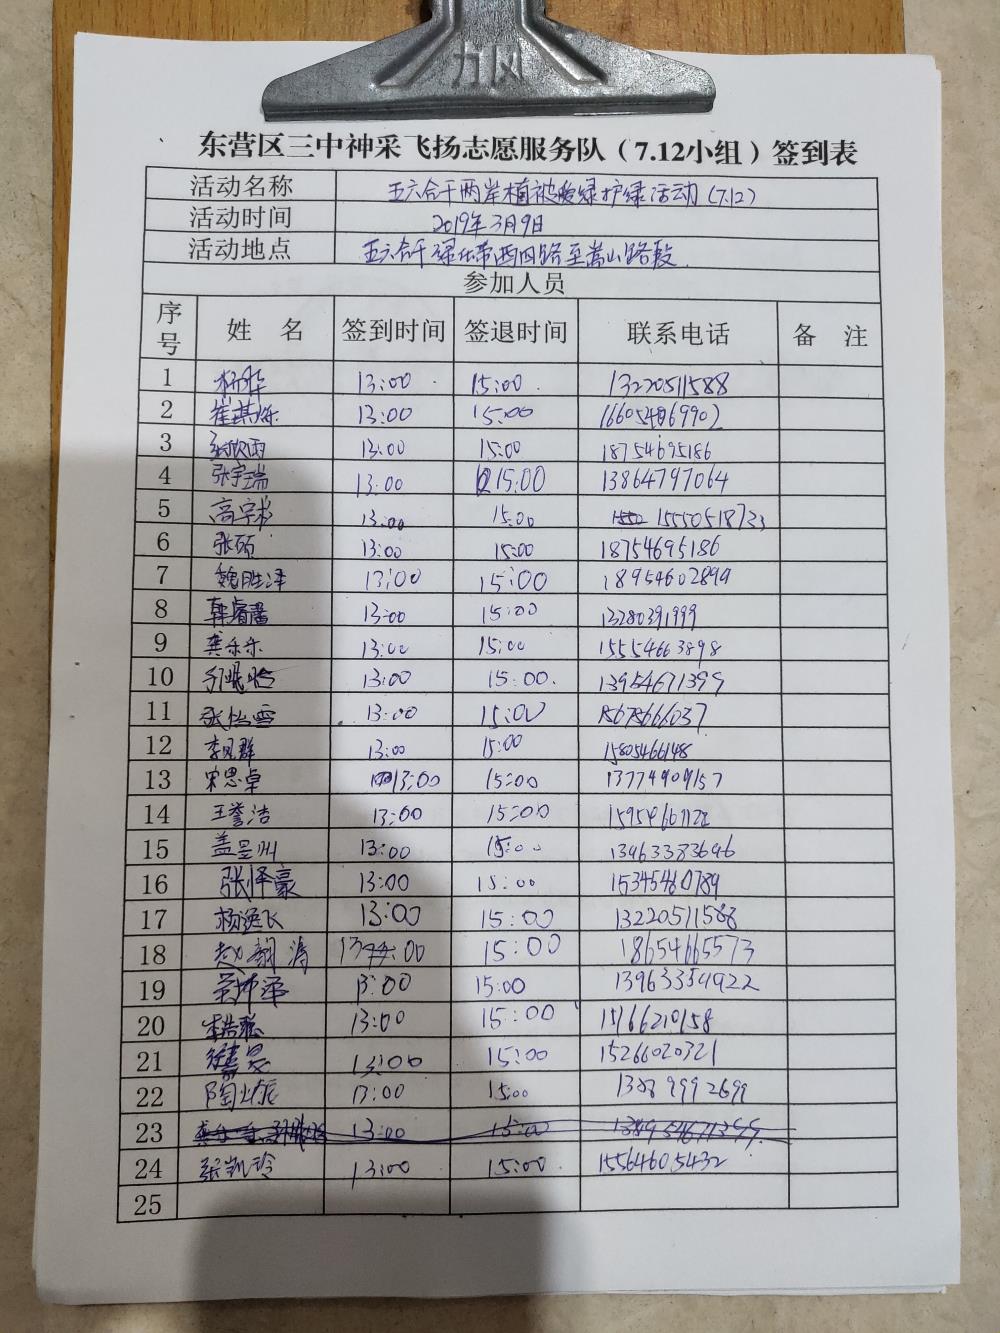 力风
东营区三中神采飞扬志愿服务队（7.12小组）签到表
活动名称 五六合干两岸植被 绿护绿活动（7.12）
活动时间 2019年3月9日
活动地点 五六合干绿化带西四路至嵩山路段
参加人员
序号 姓 名 签到时间 签退时间 联系电话 备 注
1 杨胜 13:00 15:00 13220511588
2 崔 13:00 15:00
3 张欣雨 13:00 15:00 18754695186
4 张宇瑞 13:00 15:00 13864797064
5 高宇 13:00 15:00 15550518723
6 张硕 13:00 15:00 18754695186
7 魏胜泽 13:00 15:00 18954602899
8 韩睿馨 13:00 15:00 13280391999
9 龚乐乐 13:00 15:00 15554663898
10 13:00 15:00 13954671399
11 张 雪 13:00 15:00 15675666037
12 李 群 13:00 15:00 15805466148
13 宋思卓 13:00 15:00 13774909157
14 王誉洁 13:00 15:00
15 盖呈州 13:00 15:00 13963383696
16 张泽豪 13:00 15:00 15345460789
17 杨逸飞 13:00 15:00 13220511588
18 赵 涛 13:00 15:00 18654665573
19 13:00 15:00 13963354922
20 李浩 13:00 15:00 15166210158
21 徐 昊 13:00 15:00 15266020321
22 陶 辰 13:00 15:00
23 13:00 15:00
24 张凯玲 13:00 15:00 15564605432
25